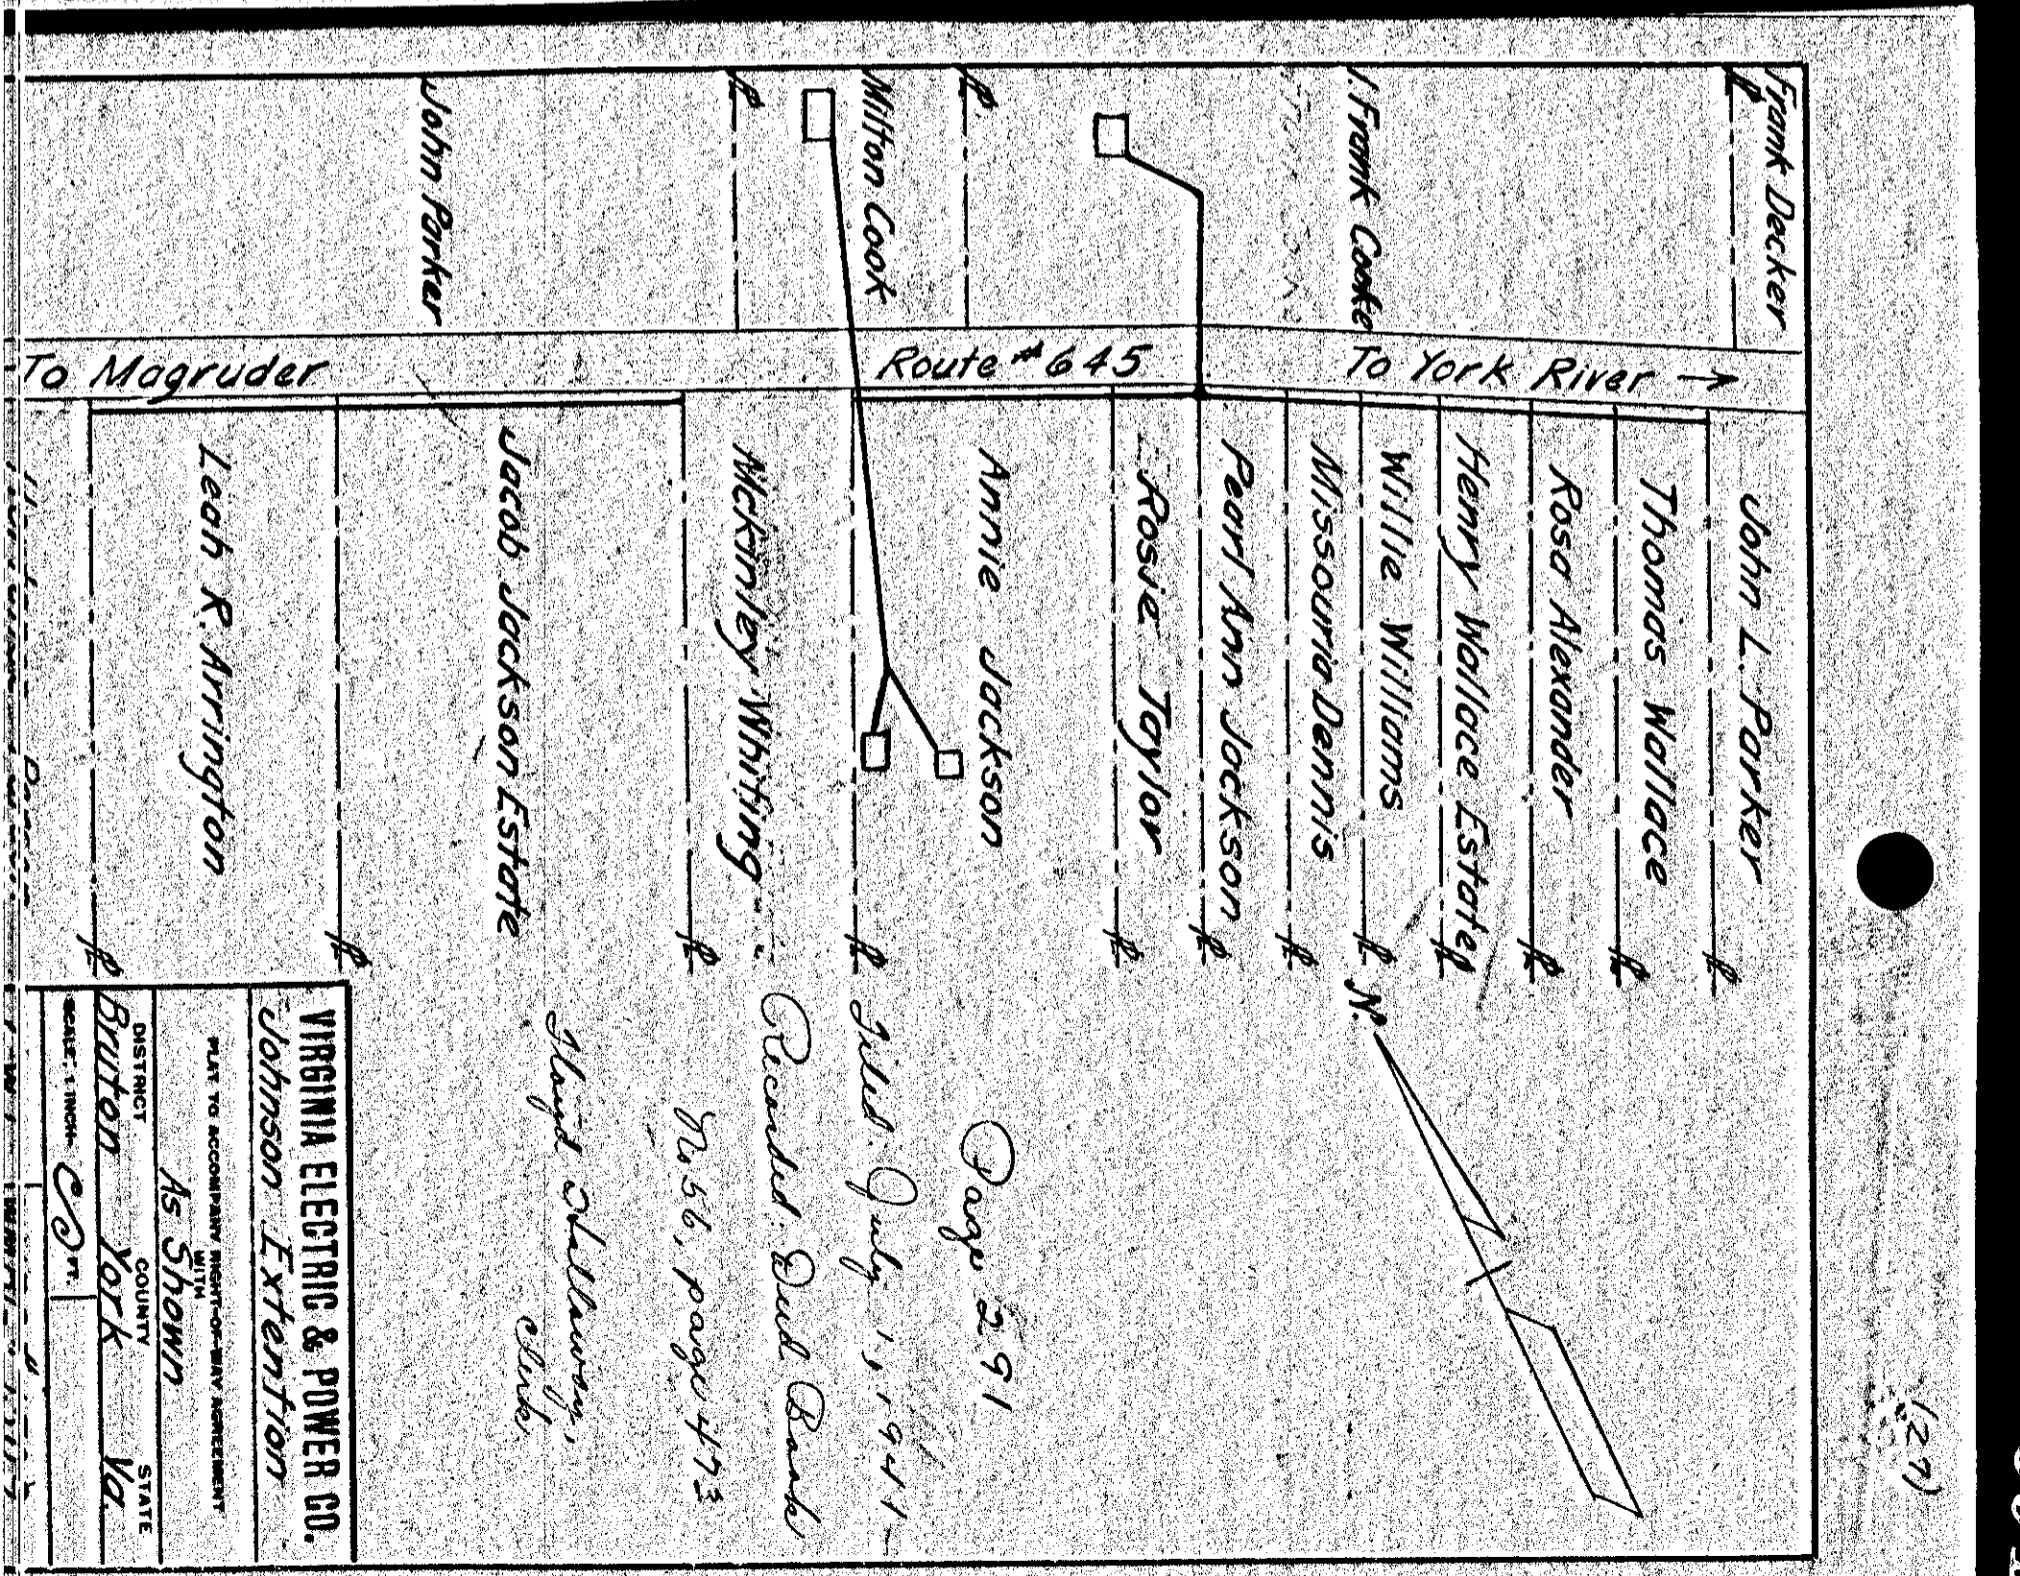 (27)
Frank Decker
J. Frank Cooke
Milton Cook
John Parker
To Magruder
Route #645
To York River →
John L. Parker
Thomas Wallace
Rosa Alexander
Henry Wallace Estate
Willie Williams
Missouria Dennis
Pearl Ann Jackson
Rosie Taylor
Annie Jackson
McKinley Whiting
Jacob Jackson Estate
Leah R. Arrington
N.
Page 291
Filed: July 1, 1941
Recorded: Deed Book
No 56, page 473
Floyd Holloway,
Clerk.
VIRGINIA ELECTRIC & POWER CO.
Johnson Extention
PLAT TO ACCOMPANY RIGHT-OF-WAY AGREEMENT
WITH
As Shown
DISTRICT COUNTY STATE
Bruton York Va.
SCALE: 1 INCH= FT.